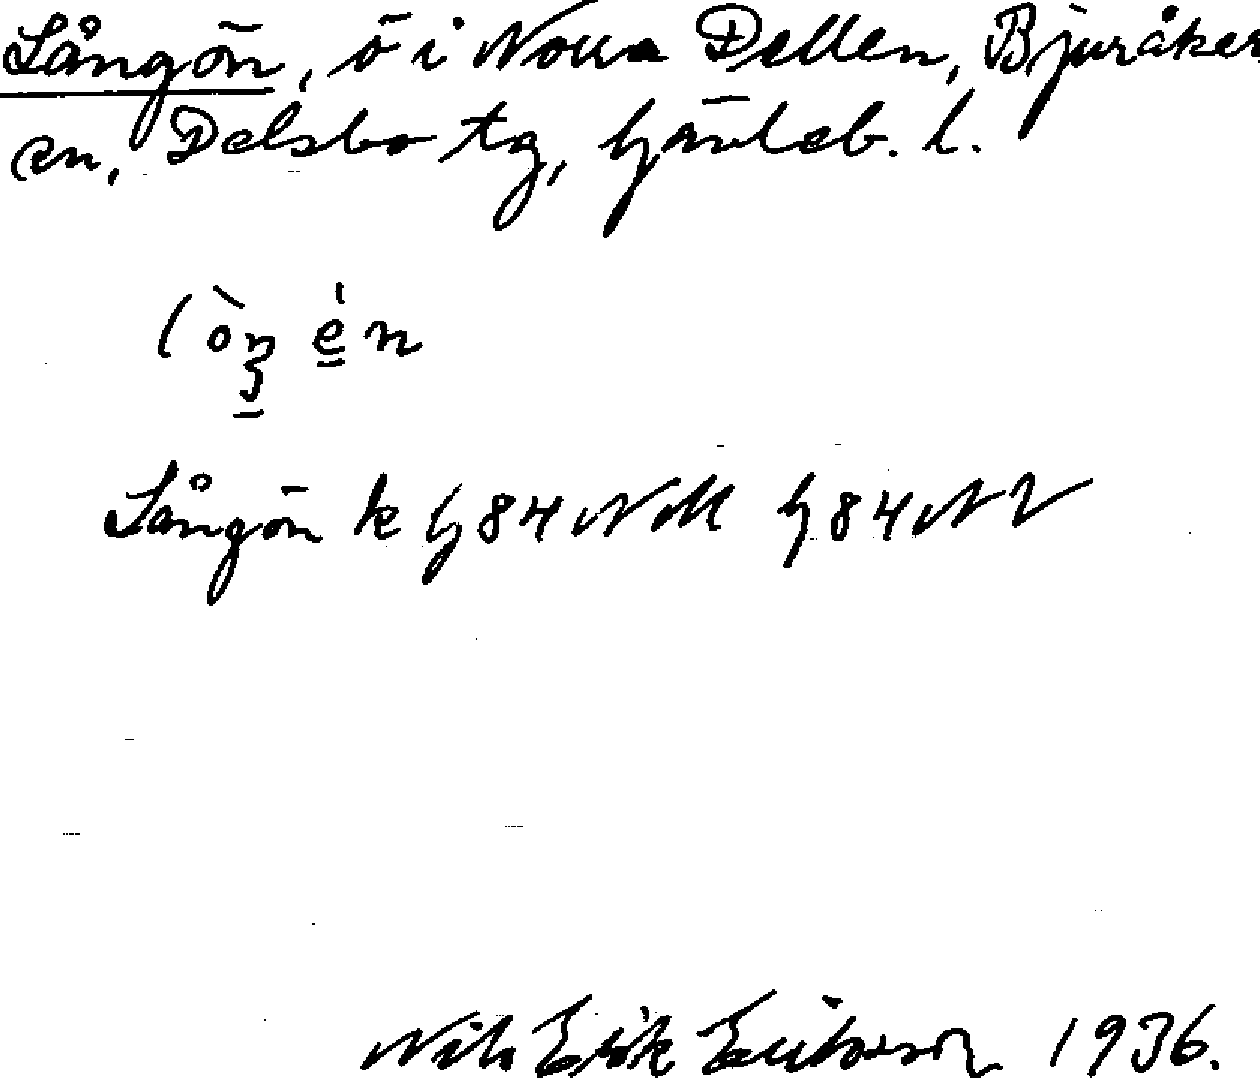 Långön, ö i Norra Dellen, Bjuråker
sn, Delsbo tg, Gävleb. l.
lòŋ én
Långön k G84NM G84NV
Nils Erik Eriksson 1936.